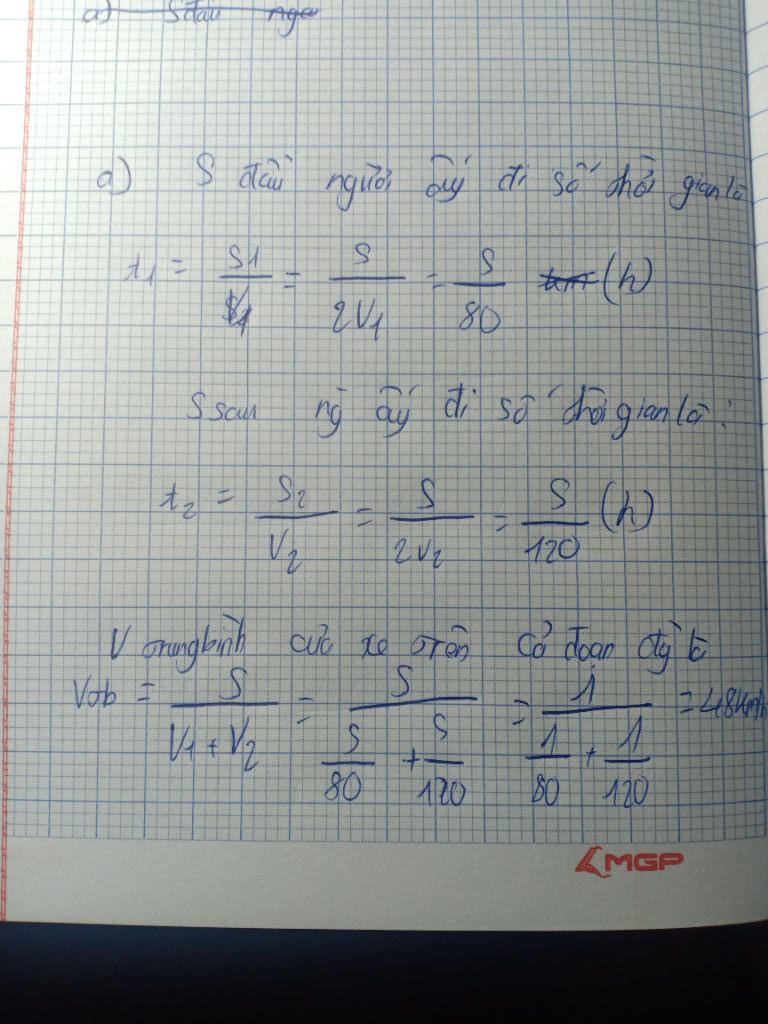 a) S đầu ngư
a) S đầu người ấy đi số thời gian là
t1 = S1/V1 = S/2V1 = S/80 (h)
S sau ng ấy đi số thời gian là:
t2 = S2/V2 = S/2V2 = S/120 (h)
V trung bình của xe trên cả đoạn đg là
Vtb = S/V1 + V2 = S/S/80 + S/120 = 1/1/80 + 1/120 = 48km/h
MGP